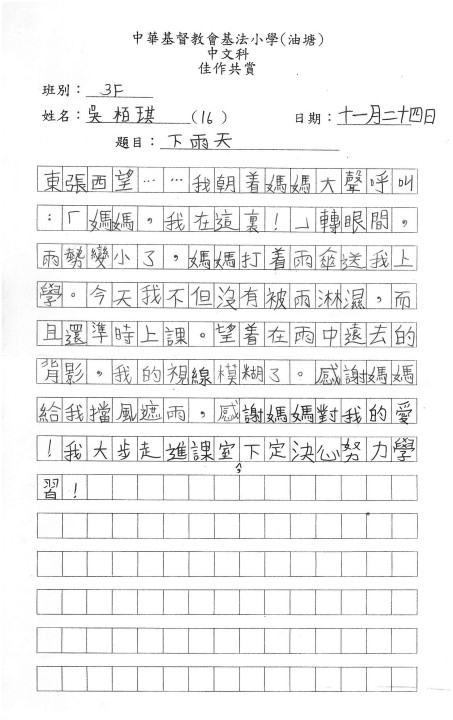 中華基督教會基法小學(油塘)
中文科
佳作共賞
班別：3F
姓名：吳栢琪(16) 日期：十一月二十四日
題目：下雨天
東張西望……我朝着媽媽大聲呼叫
：「媽媽，我在這裏！」轉眼間，
雨勢變小了，媽媽打着雨傘送我上
學。今天我不但沒有被雨淋濕，而
且還準時上課。望着在雨中遠去的
背影，我的視線模糊了。感謝媽媽
給我擋風遮雨，感謝媽媽對我的愛
！我大步走進課室，下定決心努力學
習！